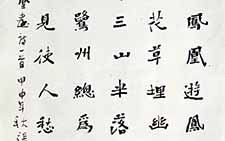 鳳凰遊鳳
花草埋幽
三山半落
鷺州總為
見使人愁
詩一首甲申年秋